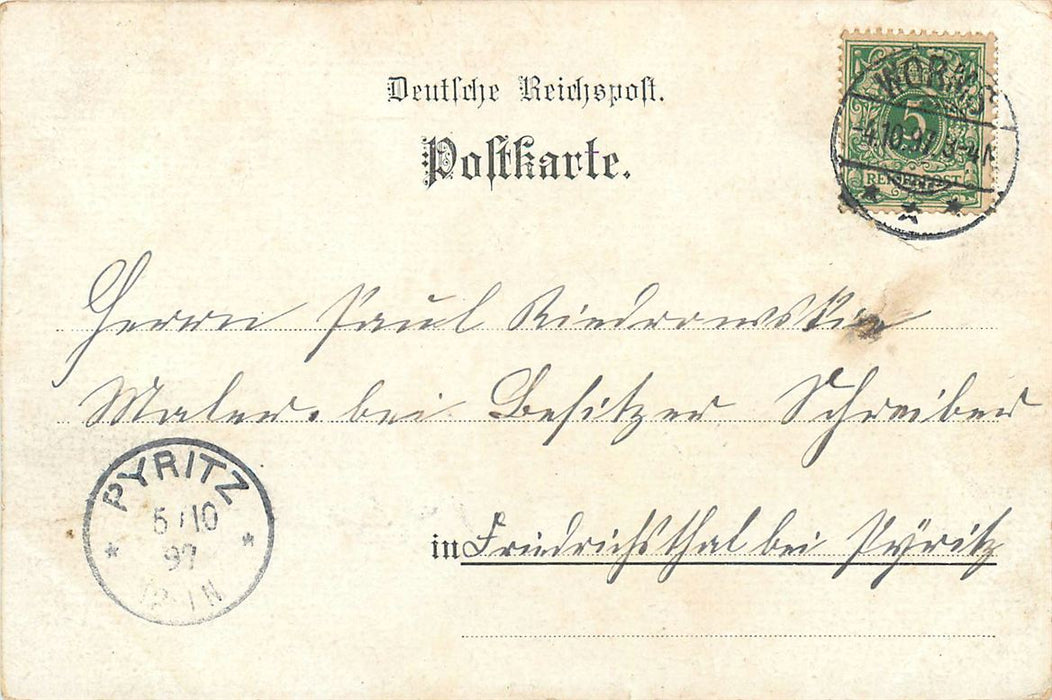 Deutsche Reichspost.
Postkarte.
WORMS
-4.10.97. 3-4N
5
REICHSPOST
Herrn Paul
Maler. bei Besitzer Schreiber
in Friedrichsthal bei Pyritz
PYRITZ
5/10
97
12-1N